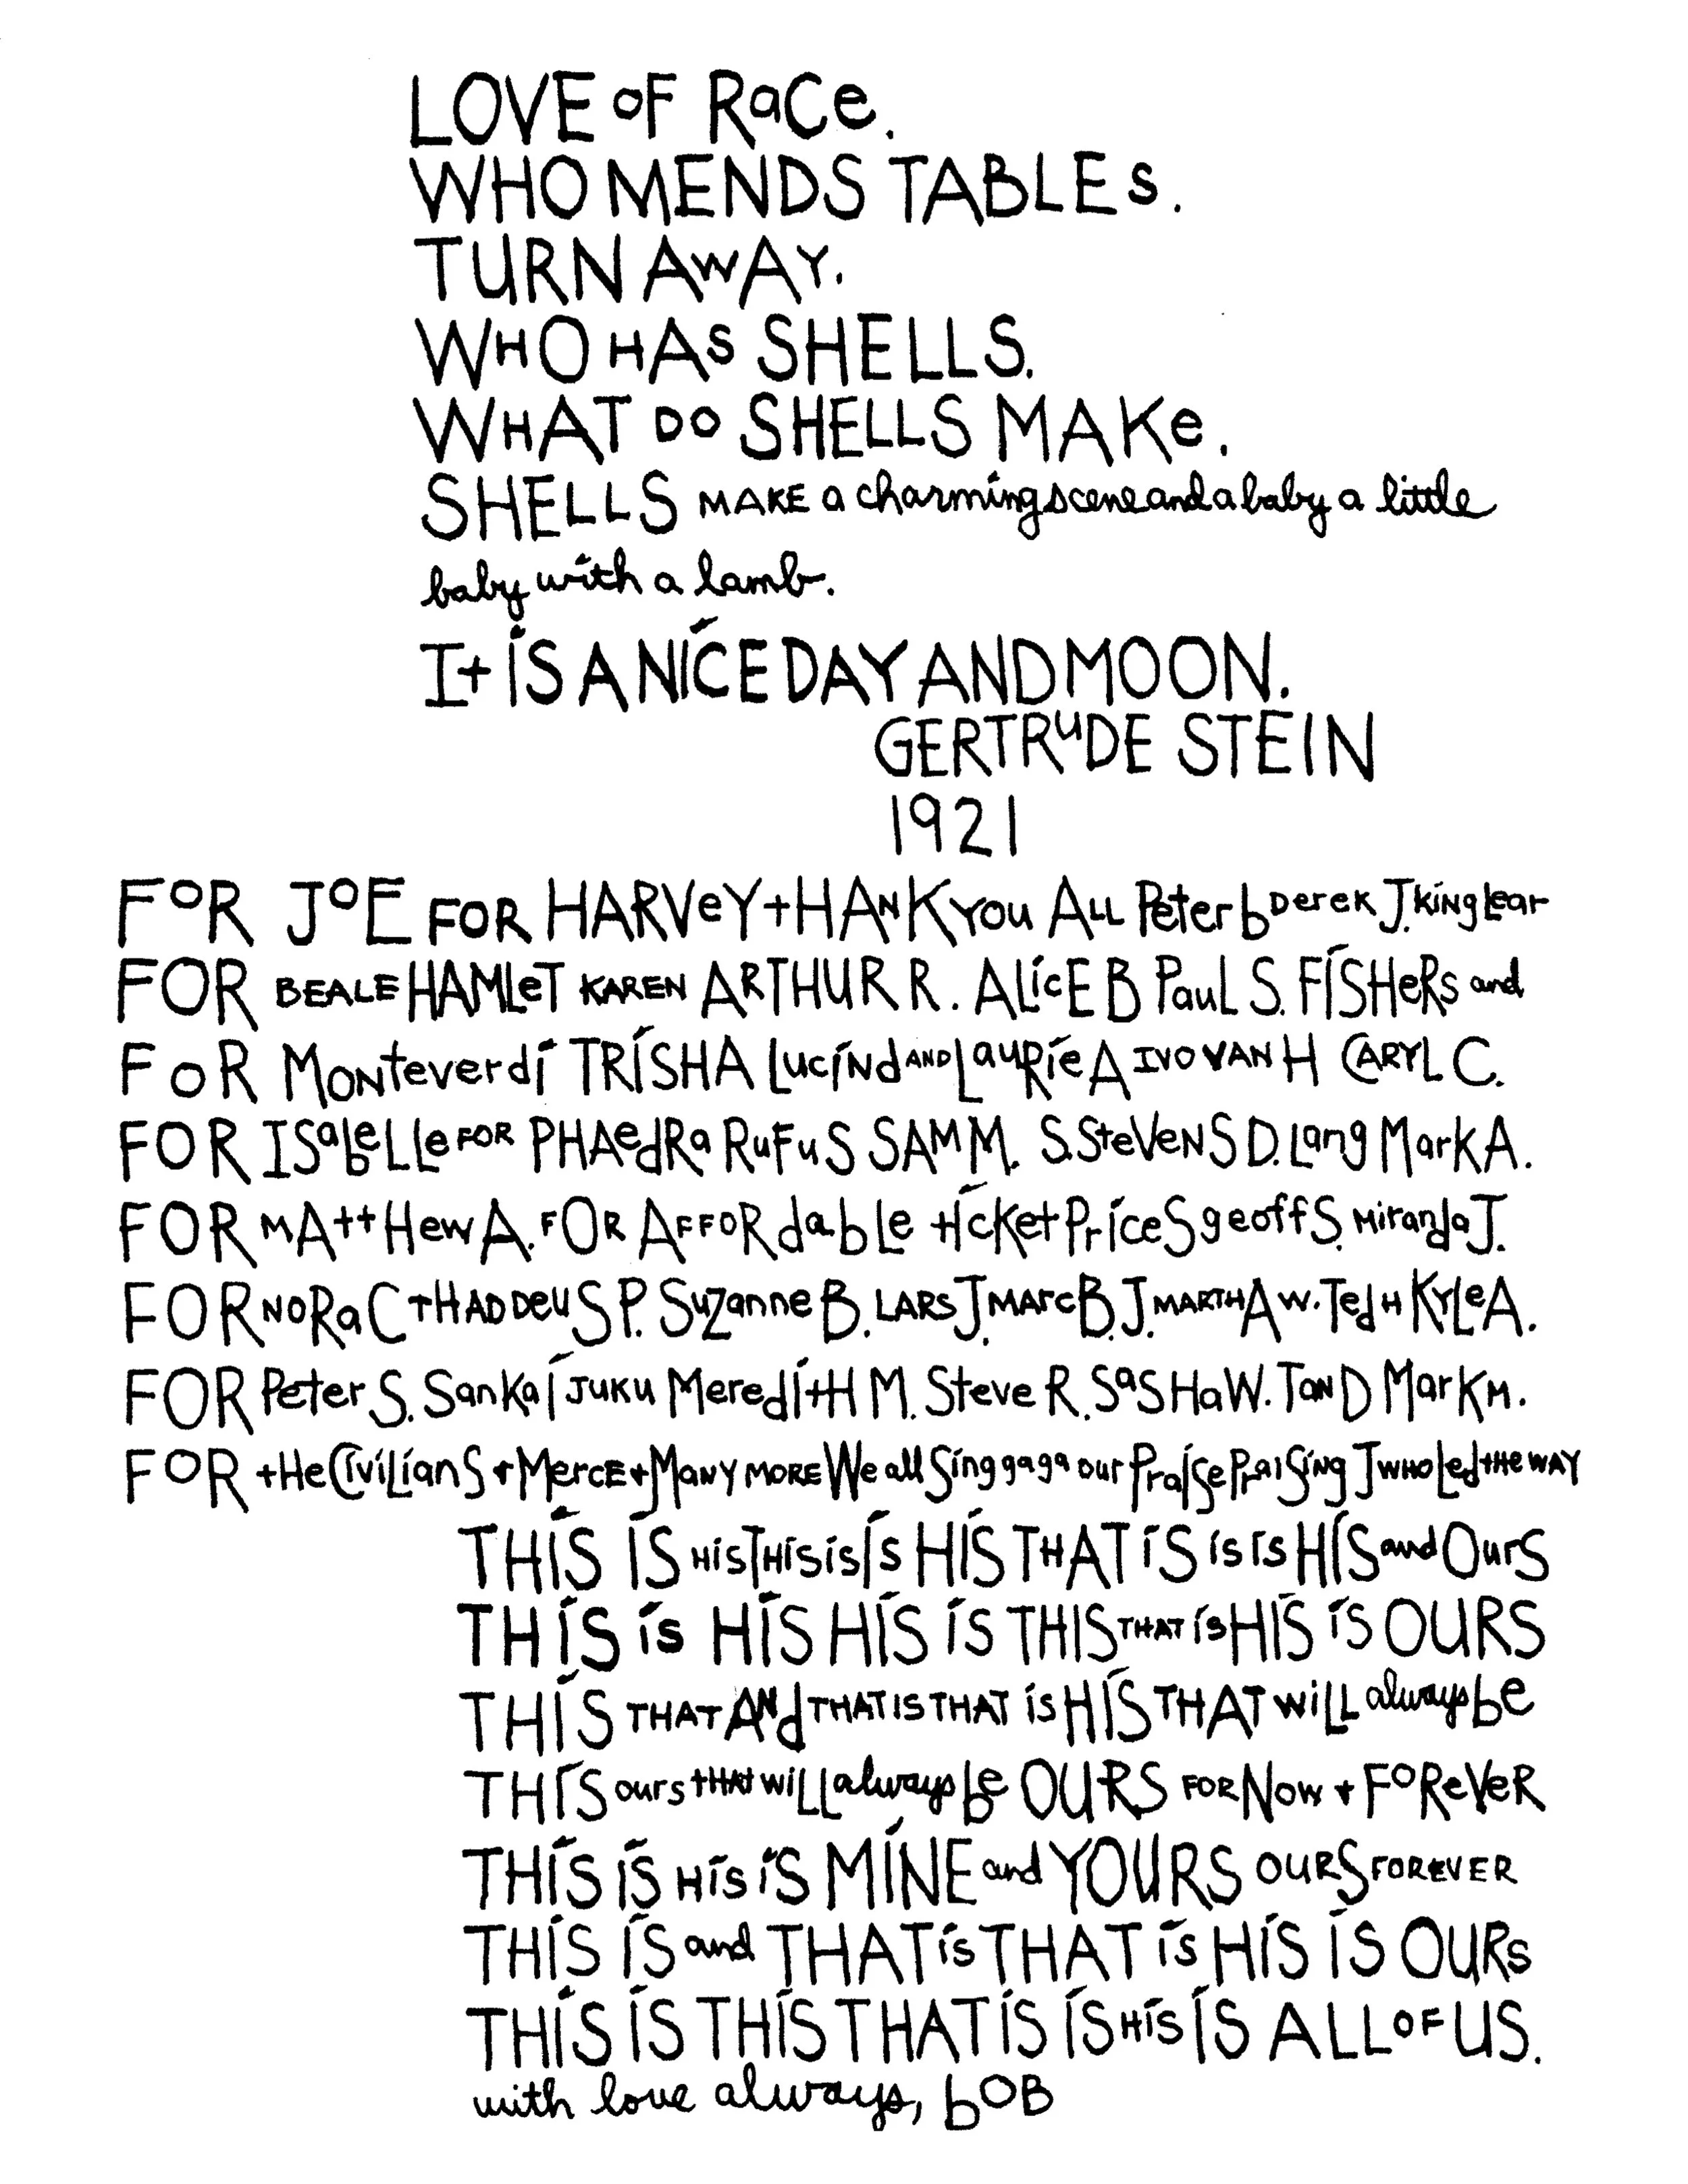 LOVE oF RaCe.
WHO MENDS TABLEs.
TURN AWAY.
WHO HAS SHELLS.
WHAT DO SHELLS MAKe.
SHELLS MAKE a charming scene and a baby a little
baby with a lamb.
It iS A NiCE DAY AND MOON.
GERTRuDE STEIN
1921
FoR JoE FOR HARVeY + HANK You ALL Peter b Derek J. King Lear
FOR BEALE HAMLeT KAREN ARTHUR R. ALicE B PauL S. FiSHeRs and
FoR MoNteverdi TRiSHA LuciNd AND LauRieA IVO VAN H CARYL C.
FOR ISabeLLe FOR PHAedRa RuFuS SAM M. S.SteVeNS D.Lang MarK A.
FOR MAttHew A. FOR AFFORdabLe ticKet PriceS geoff S. Miranda J.
FOR NORa C tHADDeuS P. SuZanne B. LARS J. MArc B. J. MARTHA W. Ted H KYLeA.
FOR Peter S. SanKai JuKu MereditH M. Steve R. SaSHa W. ToN D MarK M.
FOR tHe CiviLianS + MercE + MaNY MORE We all Sing gaga our PraiSe PraiSiNg J WHO Led tHe WAY
THiS iS HiS THiS iS iS HiS THAT iS iS iS HiS and OurS
THiS is HiS HiS iS THIS THAT is HiS iS OURS
THiS THAT ANd THAT IS THAT is HiS THAT WiLL always be
THiS ours tHAt WiLL always be OURS FOR Now + FoReVeR
THiS iS HiS iS MiNE and YOURS OURS FOREVER
THiS iS and THAT is THAT is HiS iS OURs
THiS iS THiS THAT iS iS HiS iS ALL OF US.
with love always, bOB